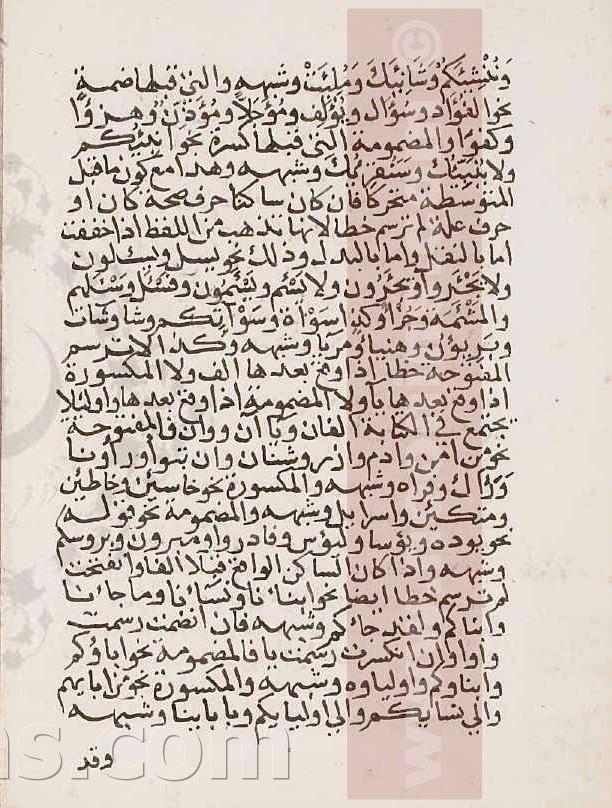 وننشئكم وشانيك وملئت وشبهه والتى قبلها ضمة
نحو الفؤاد وسؤال ويؤلف ومؤجلا ومؤذن وهزؤا
وكفؤا والمضمومة التى قبلها كسرة نحو انبئكم
ولا ينبئك وسنقرئك وشبهه وهذا مع كون ما قبل
المتوسطة متحركا فان كان ساكنا حرف صحة كان او
حرف علة لم ترسم خطا لانها تذهب من اللفظ اذا خففت
اما بالنقل واما بالبدل وذلك نحو يسئل ويسئلون
ولا تجئروا ويجئرون ولا يسئم ويسئمون وفسئل وسئلهم
والمشئمة وجزا وكذا سوأة وسوأتكم وشا وشات
وبريؤن وهنيا ومريا وشبهه وكذا لا ترسم
المفتوحة خطا اذا وقع بعدها الف ولا المكسورة
اذا وقع بعدها يا ولا المضمومة اذا وقع بعدها واو لئلا
يجتمع فى الكتابة الفان ويا ان وواوان فالمفتوحة
نحو من امن وادم وازر وشنئان وان تبوأ ورأ ونأ
ورأك ورأه وشبهه والمكسورة نحو خاسئين وخاطئين
ومتكئين واسرايل وشبهه والمضمومة نحو قوله
نحو يوده ويؤسا وليؤس وفادرؤا ومبرؤن وبرءوسكم
وشبهه واذا كان الساكن الواقع قبلا الفا وانفتحت
لم ترسم خطا ايضا نحو ابناءنا ونساءنا وما جاءنا
وابناكم ولقد جاءكم وشبهه فان انضمت رسمت
واوا وان انكسرت رسمت يا فالمضمومة نحو اباؤكم
وابناوكم واولياوه وشبهه والمكسورة نحو من ابايهم
والى نسايكم والى اوليايكم وباباينا وشبهه
وقد